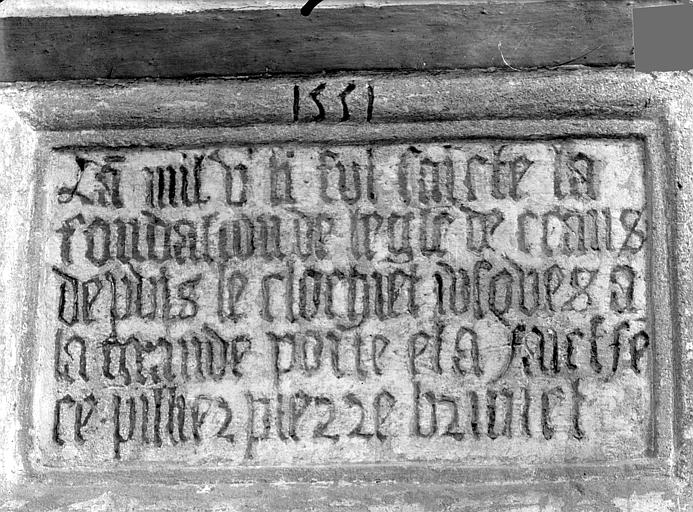 1551
La mil vc li fut faicte la
fondation de legle de ceans
depuis le clochiet iusques a
la grande porte et a faict fe
re pilher pierre brunet